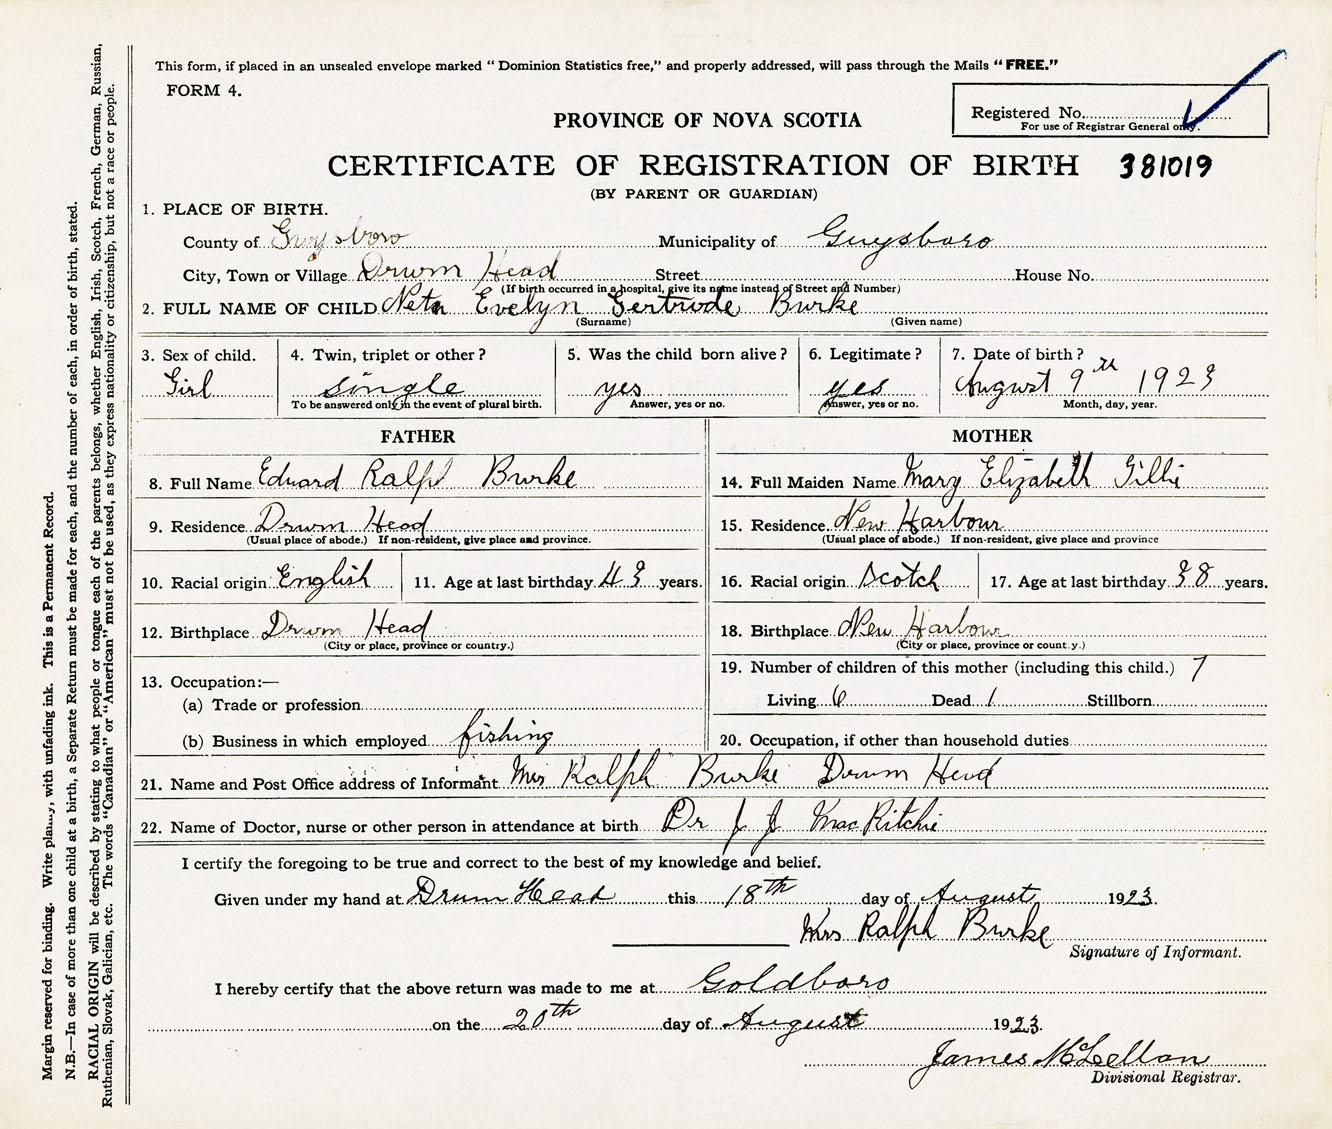 This form, if placed in an unsealed envelope marked "Dominion Statistics free," and properly addressed, will pass through the Mails "FREE."
FORM 4.
Registered No.
For use of Registrar General only.
PROVINCE OF NOVA SCOTIA
CERTIFICATE OF REGISTRATION OF BIRTH 381019
(BY PARENT OR GUARDIAN)
1. PLACE OF BIRTH.
County of Guysboro Municipality of Guysboro
City, Town or Village Drum Head Street House No.
(If birth occurred in a hospital, give its name instead of Street and Number)
2. FULL NAME OF CHILD Neta Evelyn Gertrude Burke
(Surname) (Given name)
3. Sex of child. 4. Twin, triplet or other? 5. Was the child born alive? 6. Legitimate? 7. Date of birth?
Girl single yes yes August 9th 1923
To be answered only in the event of plural birth. Answer, yes or no. Answer, yes or no. Month, day, year.
FATHER
8. Full Name Edward Ralph Burke
9. Residence Drum Head
(Usual place of abode.) If non-resident, give place and province.
10. Racial origin English 11. Age at last birthday 43 years.
12. Birthplace Drum Head
(City or place, province or country.)
13. Occupation:—
(a) Trade or profession
(b) Business in which employed fishing
MOTHER
14. Full Maiden Name Mary Elizabeth Gillie
15. Residence New Harbour
(Usual place of abode.) If non-resident, give place and province
16. Racial origin Scotch 17. Age at last birthday 38 years.
18. Birthplace New Harbour
(City or place, province or count.y.)
19. Number of children of this mother (including this child.) 7
Living 6 Dead 1 Stillborn
20. Occupation, if other than household duties
21. Name and Post Office address of Informant Mrs Ralph Burke Drum Head
22. Name of Doctor, nurse or other person in attendance at birth Dr J J MacRitchie
I certify the foregoing to be true and correct to the best of my knowledge and belief.
Given under my hand at Drum Head this 18th day of August 1923.
Mrs Ralph Burke
Signature of Informant.
I hereby certify that the above return was made to me at Goldboro
on the 20th day of August 1923.
James McLellan
Divisional Registrar.
Margin reserved for binding. Write plainly, with unfading ink. This is a Permanent Record.
N.B.—In case of more than one child at a birth, a Separate Return must be made for each, and the number of each, in order of birth, stated.
RACIAL ORIGIN will be described by stating to what people or tongue each of the parents belongs, whether English, Irish, Scotch, French, German, Russian,
Ruthenian, Slovak, Galician, etc. The words "Canadian" or "American" must not be used, as they express nationality or citizenship, but not a race or people.